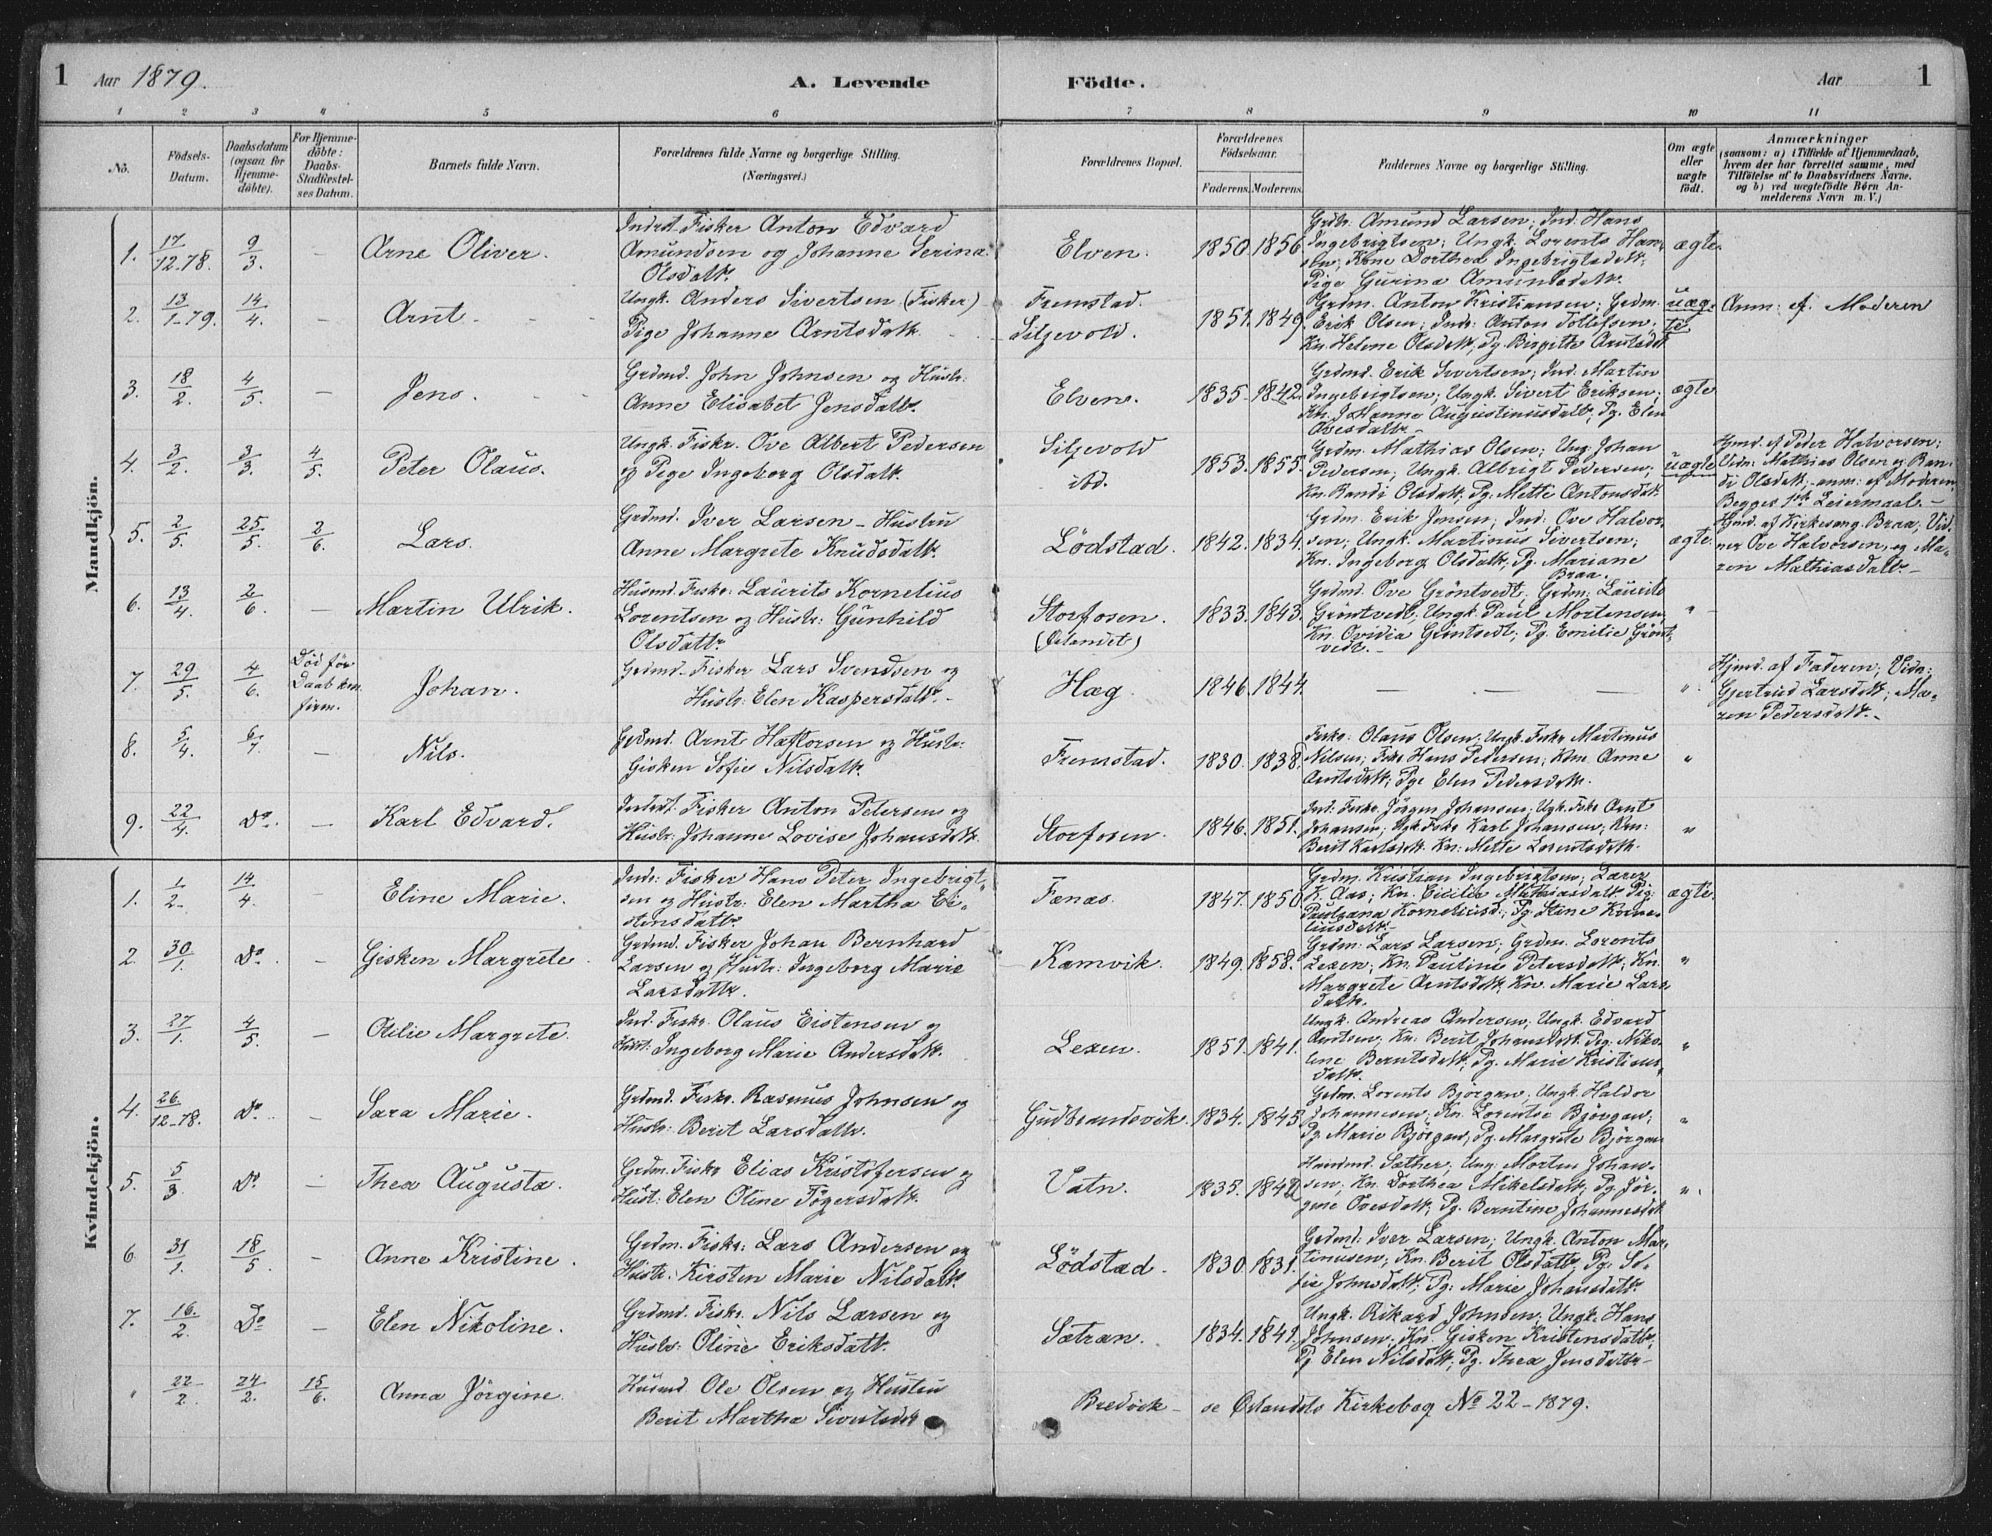 1 Aar 1879. A. Levende Födte. Aar 1
1 2 3 4 5 6 7 8 9 10 11
No.
Födsels-
Datum.
Daabsdatum
(ogsaa for
Hjemme-
döbte).
For Hjemme-
döbte:
Daabs-
Stadfæstel-
ses Datum.
Barnets fulde Navn.
Forældrenes fulde Navne og borgerlige Stilling.
(Næringsvei.)
Forældrenes Bopæl.
Forældrenes
Födselsaar.
Faderens. Moderens.
Faddernes Navne og borgerlige Stilling.
Om ægte
eller
uægte
födt.
Anmærkninger
(saasom: a) i Tilfælde af Hjemmedaab,
hvem der har forrettet samme, med
Tilföielse af to Daabsvidners Navne.
og b) ved uægtefödte Börn An-
melderens Navn m. V.)
Mandkjön.
1. 17/12-78. 9/3. — Arne Oliver.
Indrst. Fisker Anton Edvard
Amundsen og Johanne Serina
Olsdatt.
Elven. 1850. 1856.
Grdm. Amund Larsen; Ind. Hans
Ingebrigtsen; Ungk. Lorents Han-
sen; Kone Dorthea Ingebrigtsdatt.
Pige Gurina Amundsdatt.
ægte.
2. 13/1-79. 14/4. — Arnt
Ungk. Anders Sivertsen (Fisker)
Pige Johanne Arntsdatt.
Fremstad.
Siljevold.
1851. 1849.
Grdm. Anton Kristiansen; Grdm.
Erik Olsen; Inds: Anton Tollefsen,
Kn. Helene Olsdatt, Pg. Birgitte Arntsdt
uæg-
te
Anm: af Moderen
3. 18/2. 4/5. — Jens.
Grdmd. John Johnsen og Hustr:
Anne Elisabet Jensdatt.
Elven. 1835. 1842.
Grdmd. Erik Sivertsen; Ind. Martin
Ingebrigtsen; Ungk. Sivert Eriksen;
Kn. Johanne Augustinusdatt; Pg. Elen
Ovesdatter
ægte
4. 3/2. 3/3. 4/5. Peter Olaus.
Ungk. Fiskr. Ove Albert Pedersen
og Pige Ingeborg Olsdatt.
Siljevold
ibd.
1853. 1855.
Grdm. Mathias Olsen; Ung. Johan
Pedersen; Ungk. Albrigt Pedersen;
Kn. Randi Olsdatt. Pg. Mette Antonsdatt
uægte
Hjmd. af Peder Halvorsen;
Vidn: Mathias Olsen og Ran-
di Olsdatt; anm: af Moderen,
Begges 1ste Leiermaal.
5. 2/5. 25/5. 2/6. Lars.
Grdmd. Iver Larsen – Hustru
Anne Margrete Knudsdatt.
Lödstad. 1842. 1834.
Grdm. Erik Jensen; Ind: Ove Halvor
sen; Ungk. Martinus Sivertsen;
Kn. Ingeborg Olsdatt, Pg. Mariane
Braa.
ægte.
Hjmd. af Kirkesang. Braa; Vid-
ner Ove Halvorsen og Ma-
ren Mathiasdatt.
6. 13/4. 2/6. — Martin Ulrik.
Husmd. Fiskr: Laurits Kornelius
Lorentsen og Hustr: Gunhild
Olsdatt.
Storfosen.
(Örlandet)
1833. 1843.
Grdmd. Ove Gröntvedt. Grdm: Laurits
Gröntvedt, Ungk. Paul Mortensen;
Kn. Ovidia Gröntvedt; Pg. Emilie Grönt-
vedt.
"
7. 29/5. 4/6.
Död för
Daab kon
firm.
Johan.
Grdmd. Fisker Lars Svendsen og
Hustr: Elen Kaspersdatt.
Hæg. 1846. 1844. — — — ".
Hjmd. af Faderen; Vidn:
Gjertrud Larsdatt; Ma-
ren Pedersdatt.
8. 5/4. 6/7. — Nils.
Grdmd. Arnt Haftorsen og Hustr:
Gisken Sofie Nilsdatt.
Fremstad. 1830. 1838.
Fiskr: Olaus Olsen. Ungk. Fiskr Martinus
Nilsen; Fiskr Hans Pedersen; Kn. Anne
Arntsdatt; Pge Elen Pedersdatt.
"
9. 22/4. Do. — Karl Edvard.
Inderst. Fisker Anton Petersen og
Hustr: Johanne Lovise Johansdatt.
Storfosen. 1846. 1851.
Ind. Fiskr. Jörgen Johansen; Ugk. Fiskr Arnt
Johansen; Ugk. Fiskr Karl Johansen; Kn:
Berit Karlsdatt. Kn: Mette Lorentsdatt.
"
Kvindekjön.
1. 1/2. 14/4. — Eline Marie.
Inds: Fisker Hans Peter Ingebrigt-
sen og Hustr: Elen Martha Ei-
stensdatt.
Fænæs. 1847. 1850.
Grdm. Kristian Ingebrigtsen; Lærer
K. Aas; Kn. Cecilie Mathiasdatt Pig:
Paulsana Korneliusd.; Pg. Stine Korne-
liusdatt.
ægte.
2. 30/1. Do. — Gisken Margrete.
Grdmd. Fisker Johan Bernhard
Larsen og Hustr: Ingeborg Marie
Larsdattr.
Kamvik. 1849. 1858.
Grdm: Lars Larsen; Grdm. Lorents
Lexen; Kn. Pauline Petersdatt; Kn.
Margrete Arntsdatt, Kn. Marie Lars-
datt.
"
3. 27/1. 4/5. — Otilie Margrete.
Ind. Fiskr. Olaus Eistensen og
Hust: Ingeborg Marie Andersdatt.
Lexen. 1851. 1841.
Ungk. Andreas Andersen; Ungk. Edvard
Arntsen, Kn: Berit Johansdatt. Pig. Niko-
line Berntsdatt; Pg. Marie Kristians-
datt.
"
4. 26/12-78. Do. — Sara Marie.
Grdmd. Fiskr. Rasmus Johnsen og
Hustr: Berit Larsdattr.
Gudbrandsvik. 1834. 1845.
Grdm. Lorents Bjørgan, Ungk. Haldor
Johannesen; Kn. Lorentse Bjørgan;
Pg. Marie Bjørgan, Pg. Margrete Bjørgan
"
5. 5/3 Do — Thea Augusta.
Grdm. Fiskr Elias Kristofersen og
Hust. Elen Oline Tøgersdatt.
Vatn. 1835. 1842
Sæther; Ung: Morten Johan-
sen, Kn. Dorthea Mikelsdatt, Pg. Jör-
gine Ovesdatt; Pg. Berntine Johannesdatt
".
6 31/1. 18/5. — Anne Kristine.
Grdm. Fiskr: Lars Andersen og
Hustr: Kirsten Marie Nilsdatt.
Lödstad. 1830. 1831.
Grdmd: Iver Larsen; Ungk. Anton Mar-
tinusen; Kn. Berit Olsdatt; Pg. So-
fie Johnsdatt; Pg: Marie Johansdatt.
7. 16/2. Do — Elen Nikoline.
Grdmd. Fiskr. Nils Larsen og
Hustr: Oline Eriksdatt.
Sætran. 1834. 1841.
Ungk. Rikard Johnsen; Ungk. Hans
Johnsen; Kn. Gisken Kristensdatt;
Pg Elen Nilsdatt; Pg. Thea Jensdatter
" 22/2 24/2. 15/6. Anna Jörgine.
Husmd. Ole Olsen og Hustru
Berit Martha Sivertsdatt
Bredvik – se Ørlandets Kirkebog No 22 – 1879.